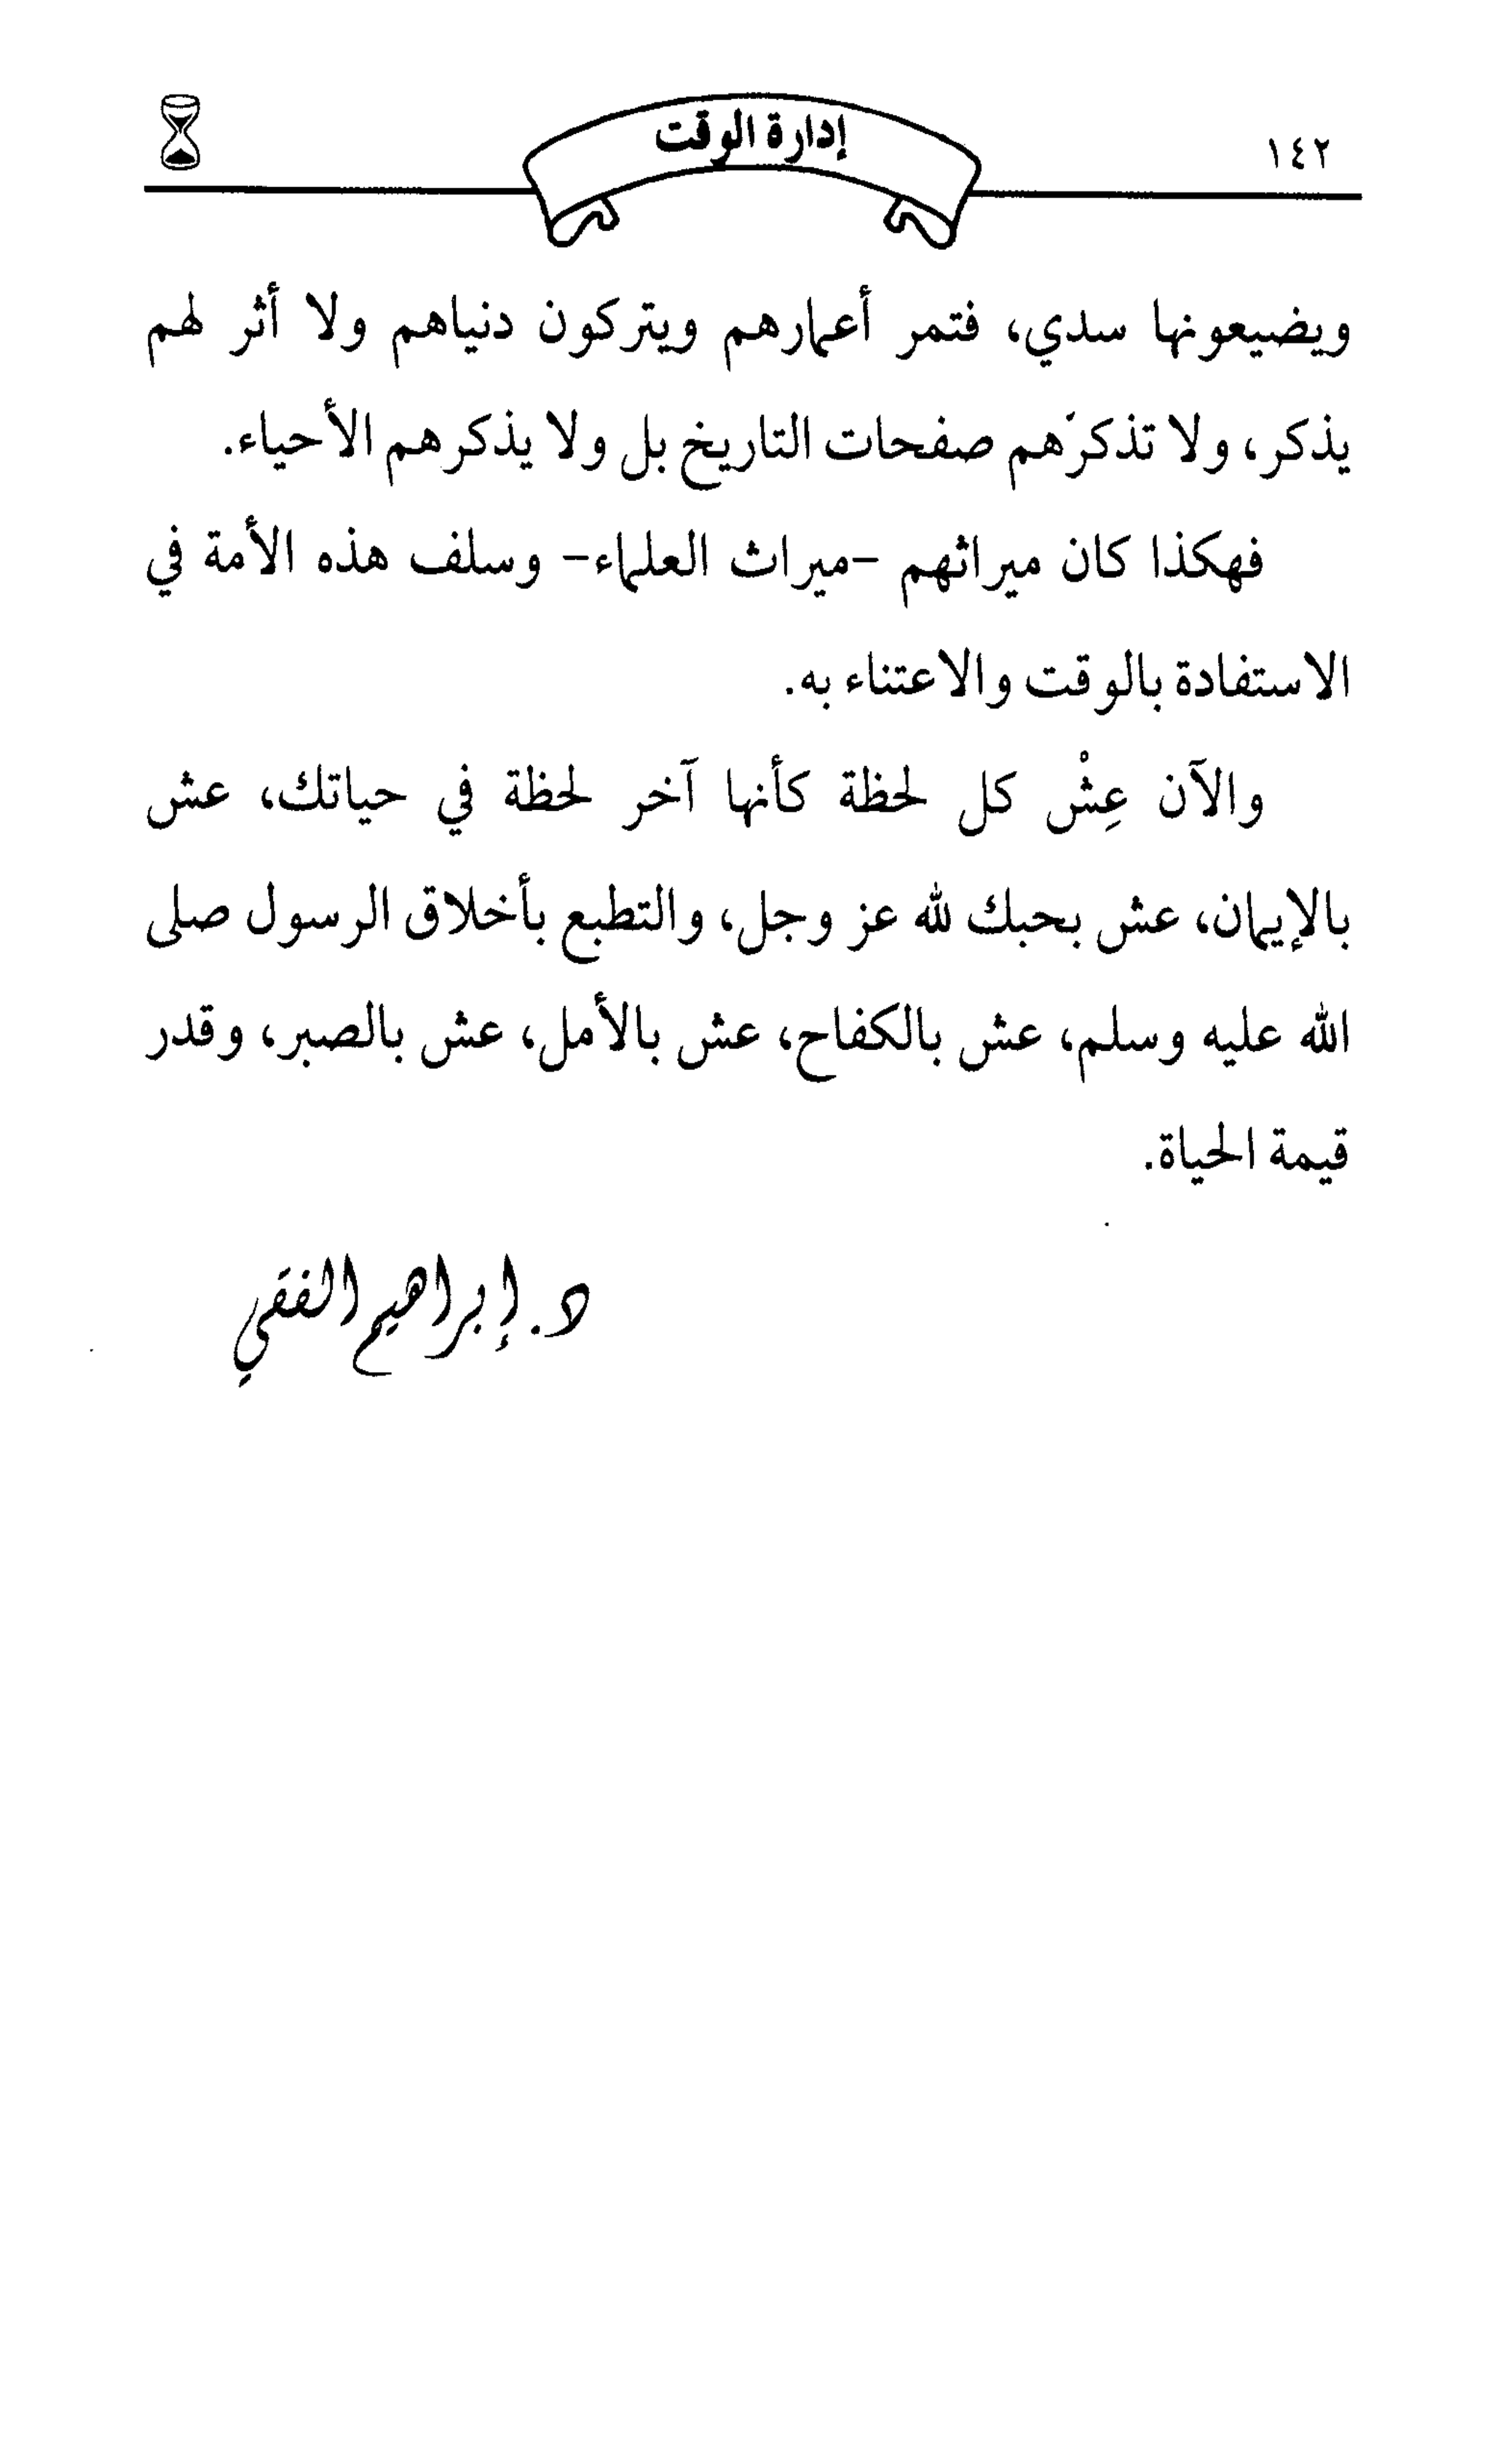 ١٤٢
إدارة الوقت
ويضيعونها سدي، فتمر أعمارهم ويتركون دنياهم ولا أثر لهم
يذكر، ولا تذكرَهم صفحات التاريخ بل ولا يذكرهم الأحياء.
فهكذا كان ميراثهم -ميراث العلماء- وسلف هذه الأمة في
الاستفادة بالوقت والاعتناء به.
والآن عِشْ كل لحظة كأنها آخر لحظة في حياتك، عش
بالإيمان، عش بحبك لله عز وجل، والتطبع بأخلاق الرسول صلى
الله عليه وسلم، عش بالكفاح، عش بالأمل، عش بالصبر، وقدر
قيمة الحياة.
د. إبراهيم الفقي